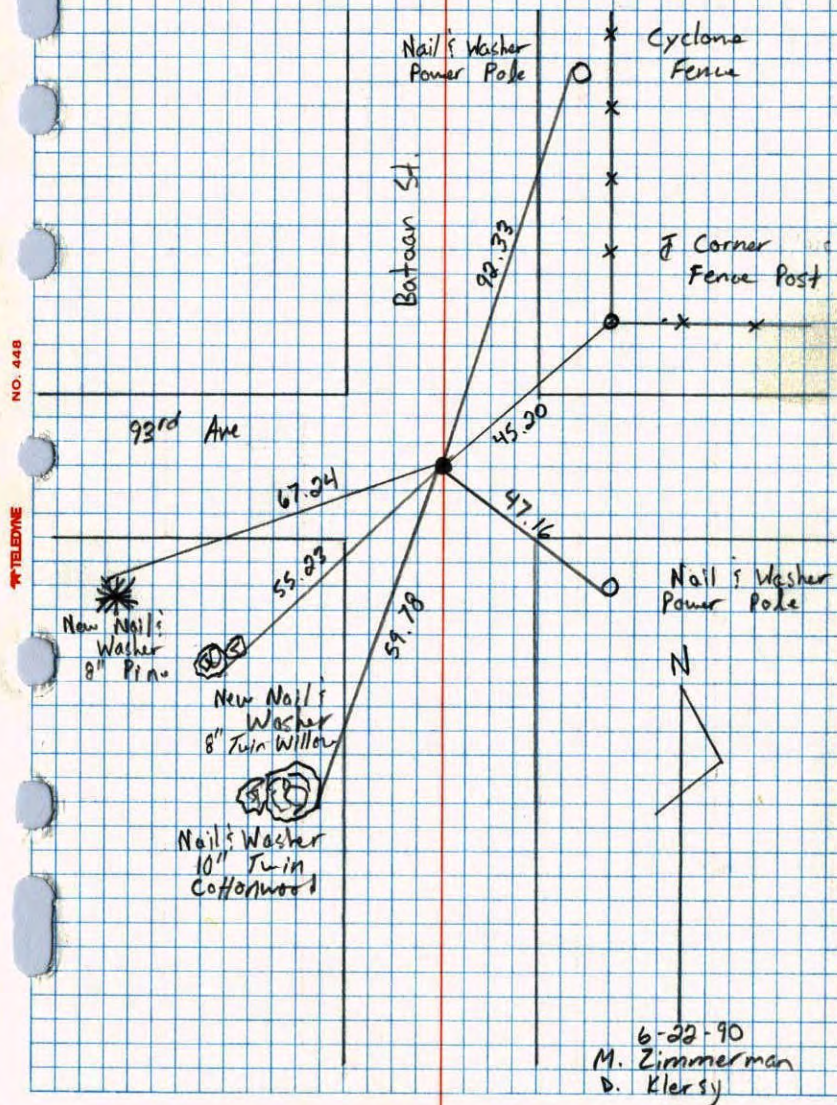 Nail & Washer
Power Pole
Cyclone
Fence
Bataan St.
92.33
Corner
Fence Post
NO. 448
93rd Ave
45.20
67.24
47.16
TELEDYNE
55.23
59.78
Nail & Washer
Power Pole
New Nail &
Washer
8" Pine
New Nail &
Washer
8" Twin Willow
N
Nail & Washer
10" Twin
Cottonwood
6-22-90
M. Zimmerman
D. Klersy